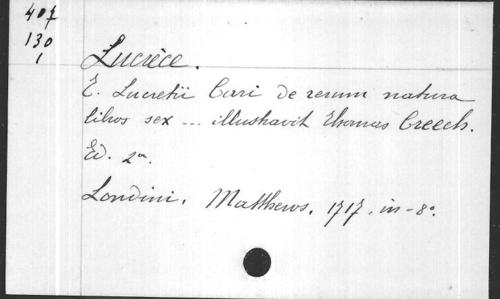 407
130
1
Lucrèce.
T. Lucretii Cari de rerum natura
libros sex ... illustravit Thomas Creech.
Ed. 2a.
Londini, Matthews, 1717, in-8o.